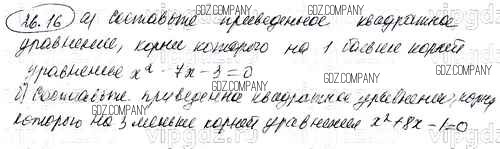 26.16 а) Составьте приведенное квадратное
уравнение, корни которого на 1 больше корней
уравнение x² - 7x - 3 = 0
б) Составьте приведенна квадратное уравнения, корни
которого на 3 меньше корней уравнения x² + 8x - 1 = 0
GDZ.COMPANY
GDZ.COMPANY
GDZ.COMPANY
GDZ.COMPANY
GDZ.COMPANY
GDZ.COMPANY
GDZ.COMPANY
GDZ.COMPANY
GDZ.COMPANY